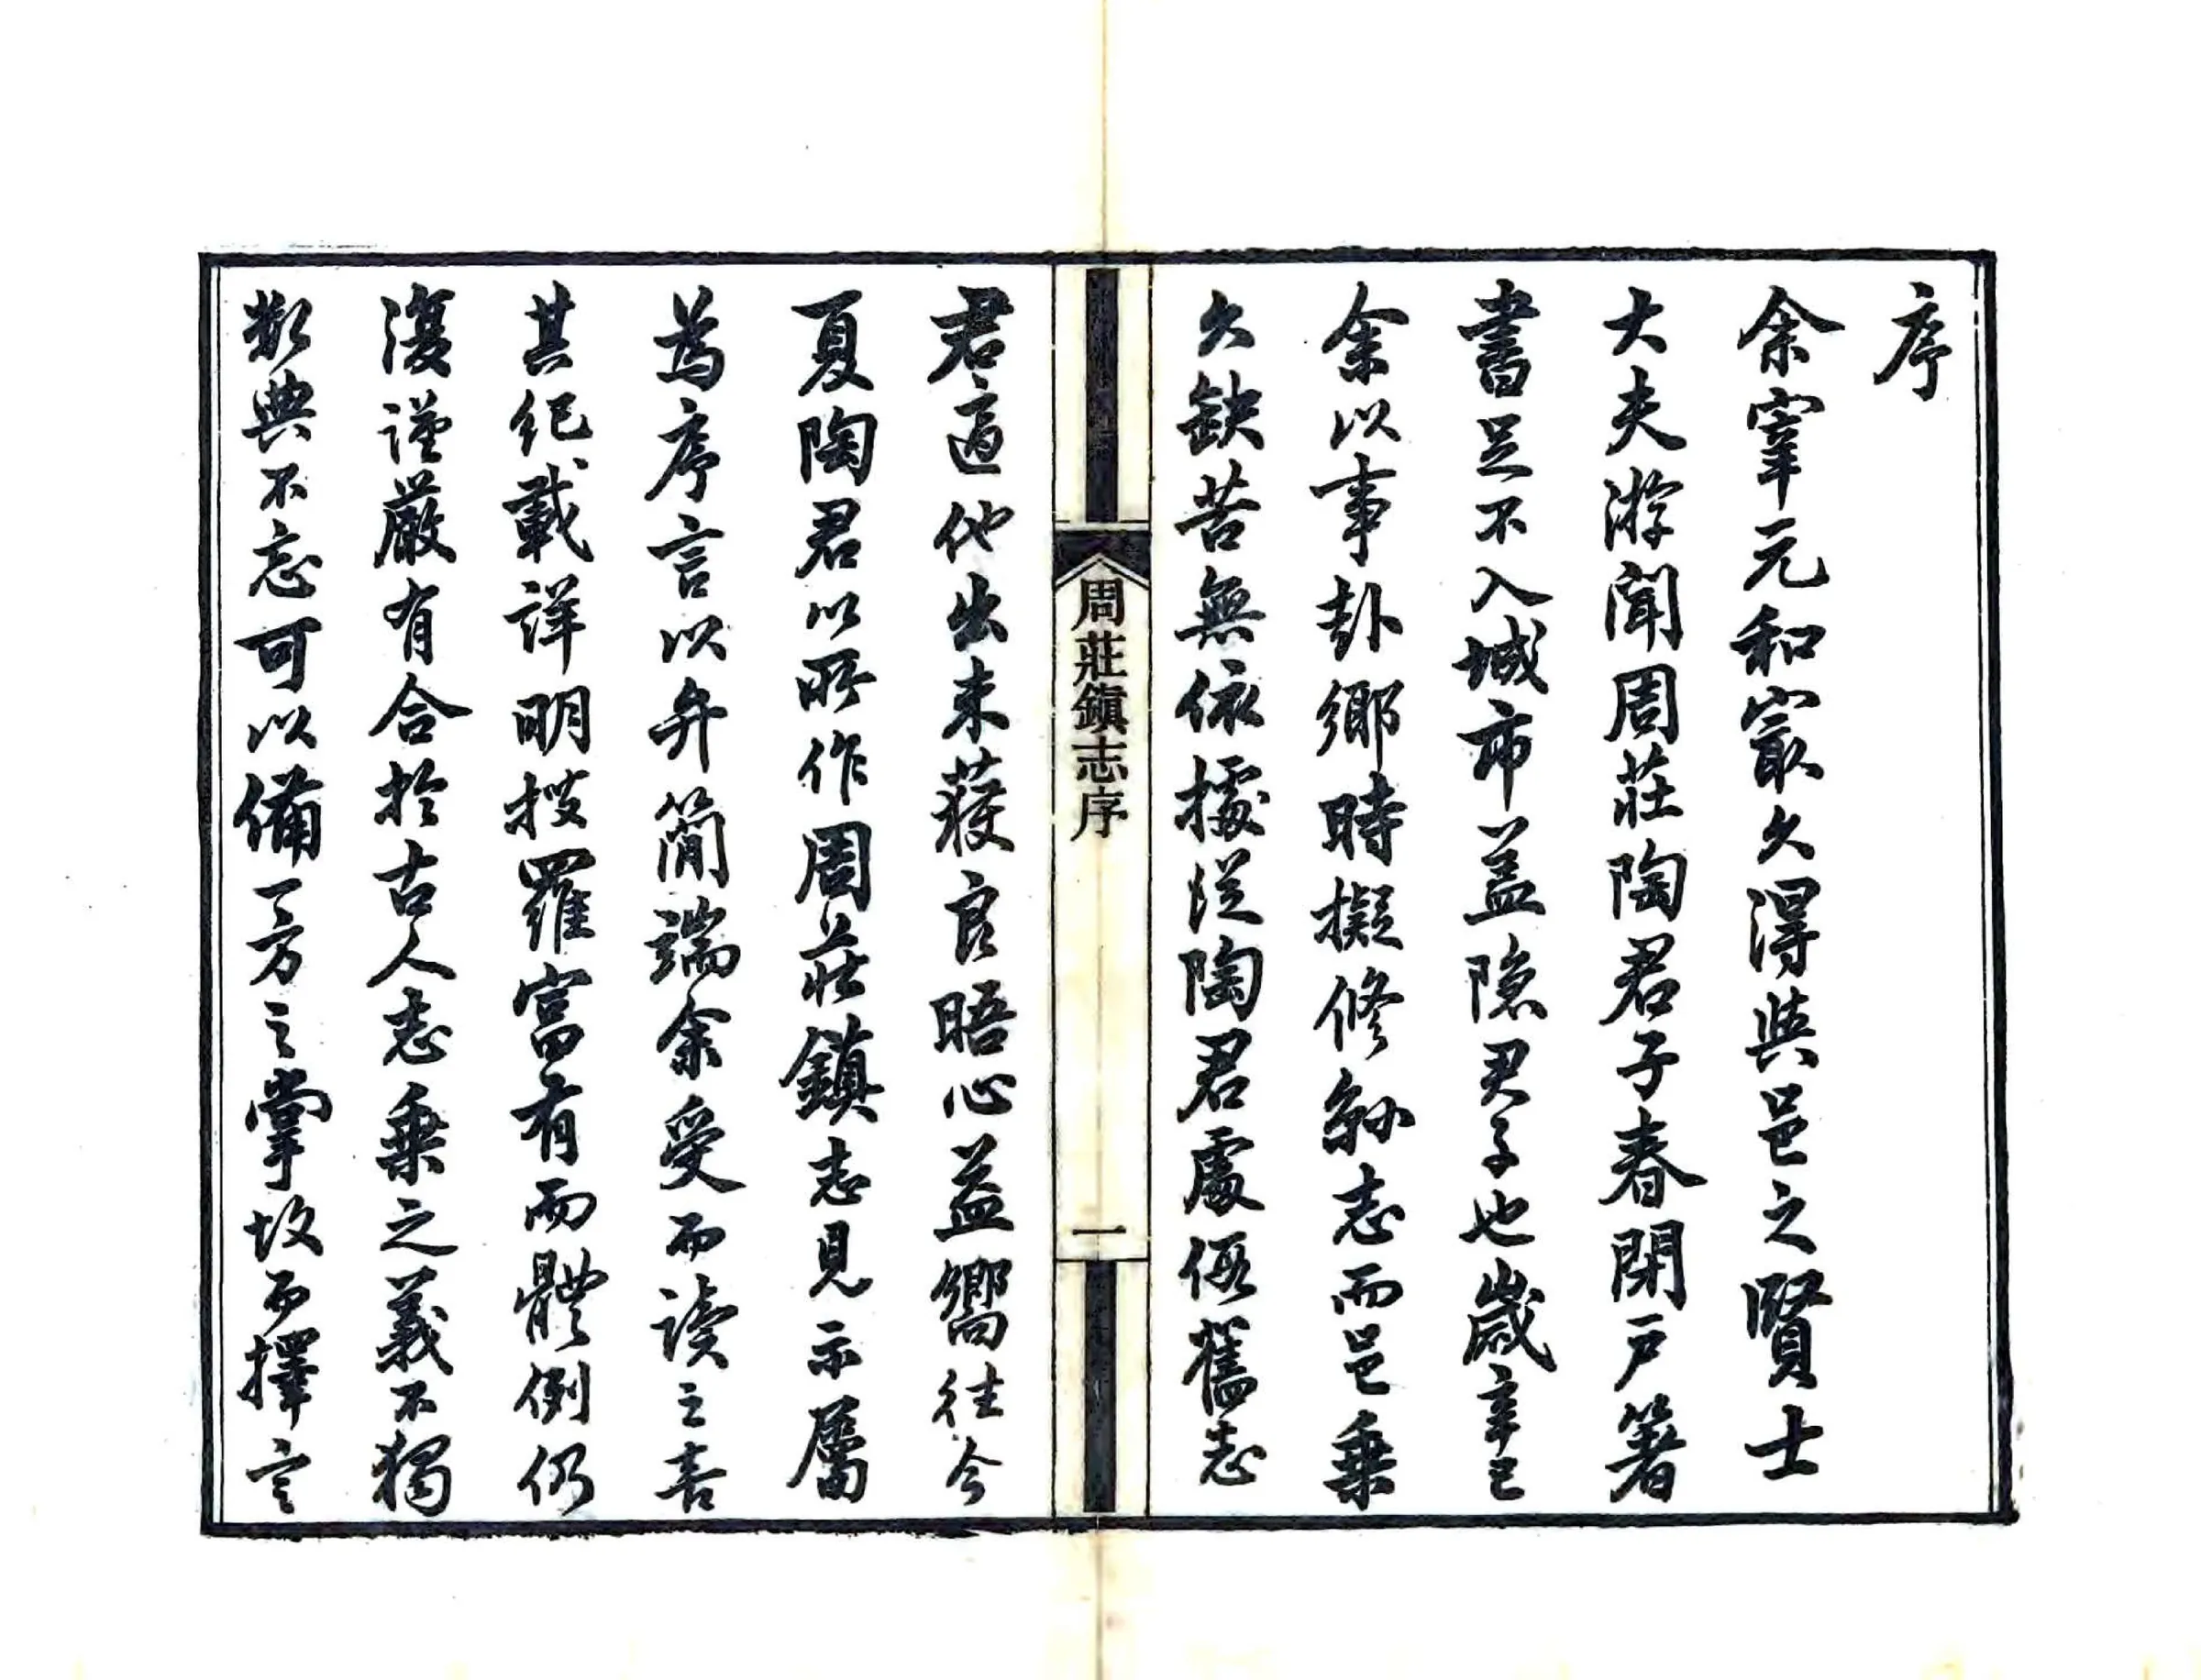 序
余宰元和㝡久得與邑之賢士
大夫游聞周莊陶君子春閉戶箸
書足不入城市盖隱君子也歲辛巳
余以事赴鄉時擬修縣志而邑乘
久缺苦無依據從陶君處假舊志
周莊鎮志序
一
君適他出未获良晤心益嚮往今
夏陶君以所作周莊鎮志見示屬
為序言以弁簡端余受而读之喜
其紀載詳明搜羅富有而體例仍
復謹嚴有合於古人志乘之義不獨
數典不忘可以備一方之掌故而擇言